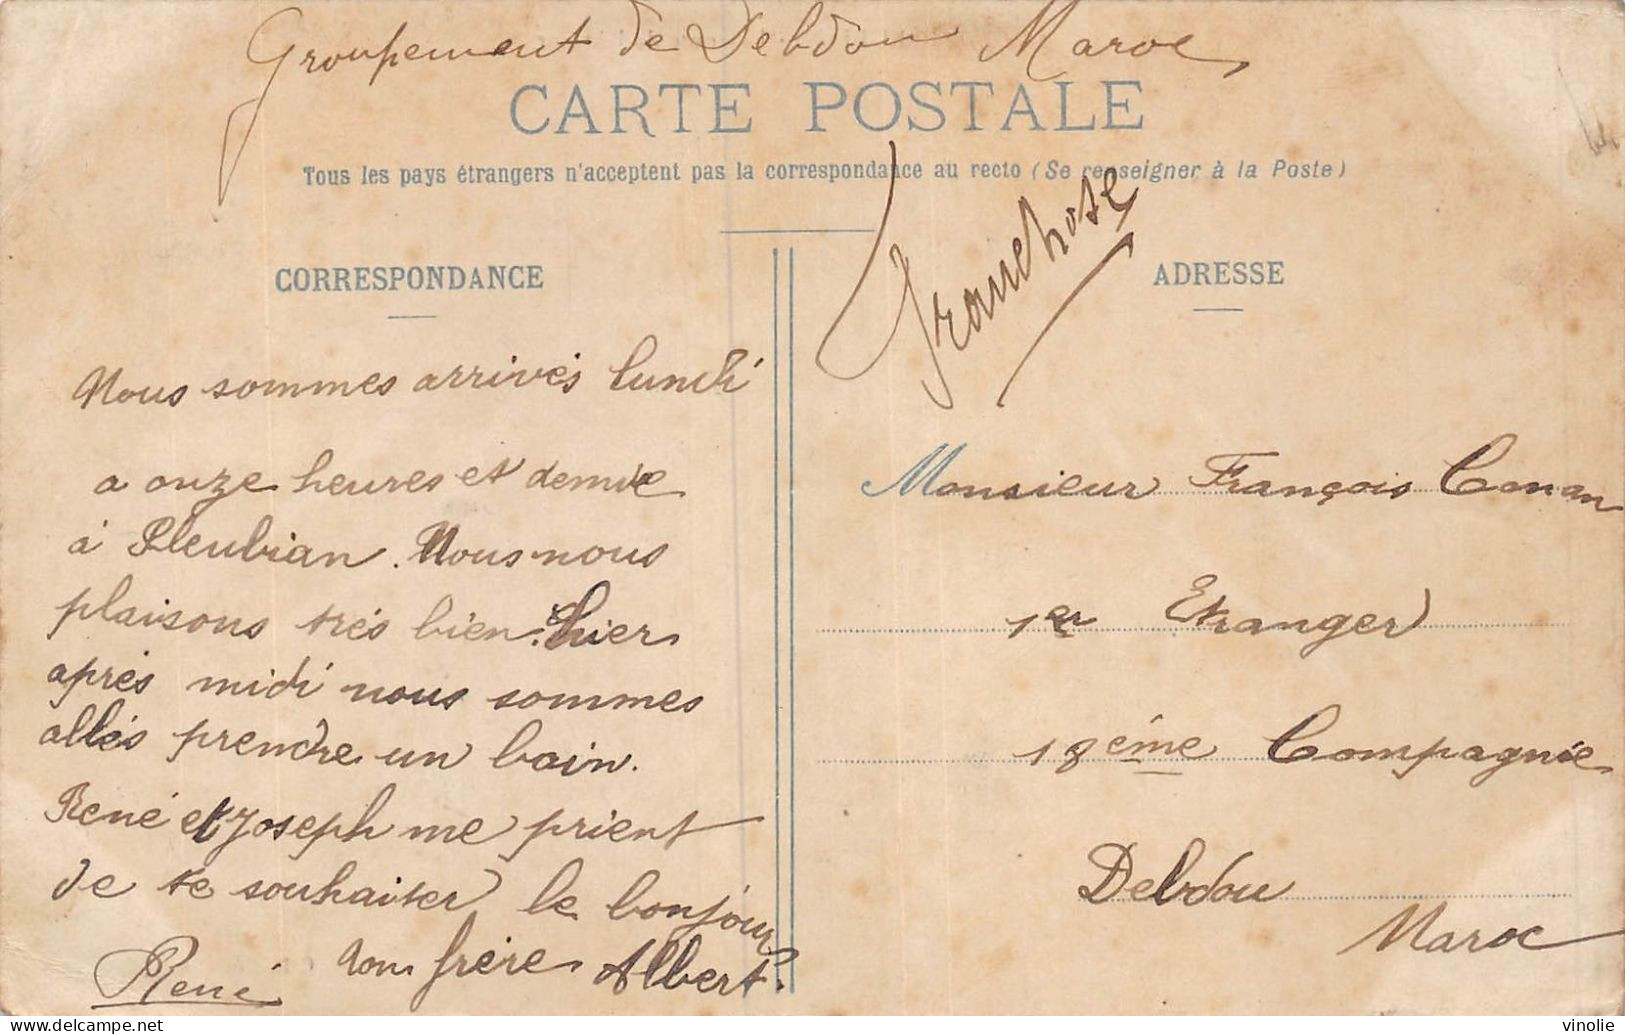 Groupement de Debdou Maroc
CARTE POSTALE
Tous les pays étrangers n'acceptent pas la correspondance au recto (Se renseigner à la Poste)
CORRESPONDANCE
Nous sommes arrivés lundi
a onze heures et demie
à Pleubian. Nous nous
plaisons très bien. hier
après midi nous sommes
allés prendre un bain.
René et Joseph me prient
de te souhaiter le bonjour
Ton frère Albert.
René
ADRESSE
Monsieur François Conan
1er Etranger
18ème Compagnie
Debdou
Maroc
vinolie